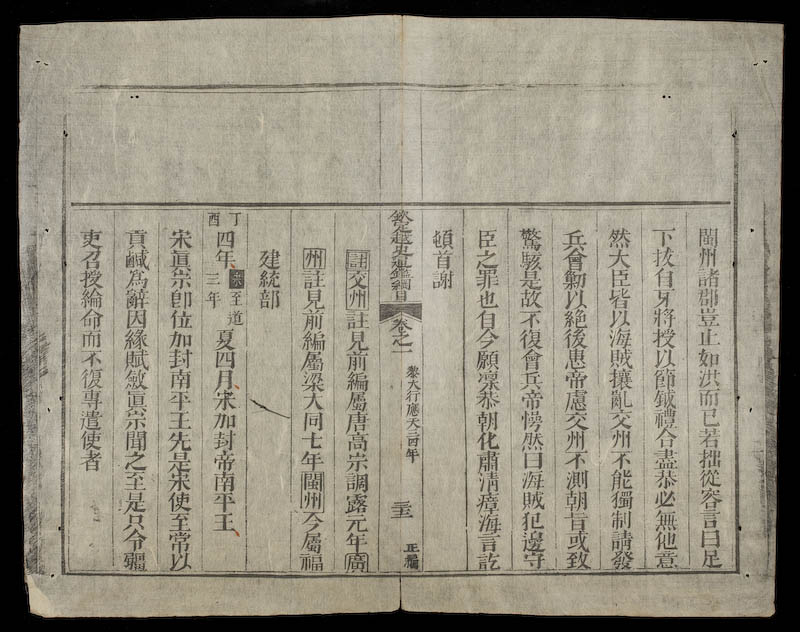 閩州諸郡豈止如洪而已若拙從容言曰足
下拔自牙將授以節鉞禮合盡恭必無他意
然大臣皆以海賊攘亂交州不能獨制請發
兵會勦以絶後患帝慮交州不測朝旨或致
驚駭是故不復會兵帝愕然曰海賊犯邊守
臣之罪也自今願凛恭朝化肅清瘴海言訖
頓首謝
欽定越史通鑑綱目 卷之一 黎大行應天三四年 二十三 正編
註交州註見前編屬唐高宗調露元年廣
州註見前編屬梁大同七年閩州今屬福
建統部
丁酉四年宋至道三年夏四月宋加封帝南平王
宋眞宗卽位加封南平王先是宋使至常以
貢鹹爲辭因緣賦斂眞宗聞之至是只令疆
吏召授綸命而不復專遣使者